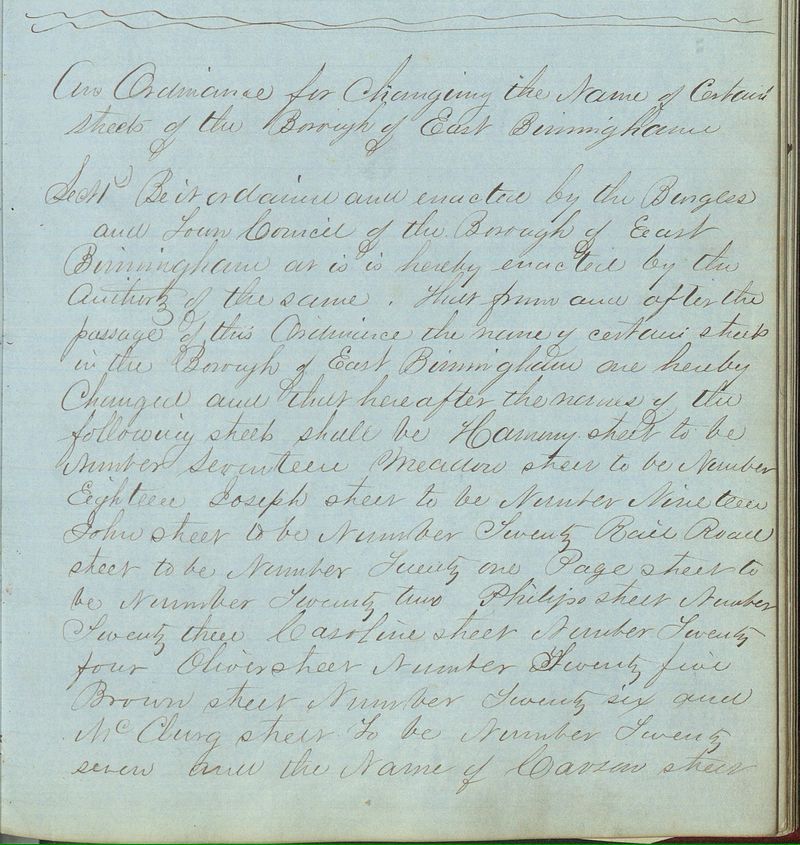 An Ordinance for Changing the Name of Certain
streets of the Borough of East Birmingham
Sect 1st Be it ordained and enacted by the Burgess
and Town Council of the Borough of East
Birmingham as is is hereby enacted by the
Authority of the same. That from and after the
passage of this Ordinance the name of certain streets
in the Borough of East Birmingham are hereby
Changed and that hereafter the names of the
following streets shall be Harmony street to be
Number Seventeen Meadow street to be Number
Eighteen Joseph street to be Number Nineteen
John street to be Number Twenty Rail Road
street to be Number Twenty one Page street to
be Number Twenty two Philips street Number
Twenty three Caroline street Number Twenty
four Oliver street Number Twenty five
Brown street Number Twenty six and
Mc Clurg street to be Number Twenty
seven and the Name of Carson street